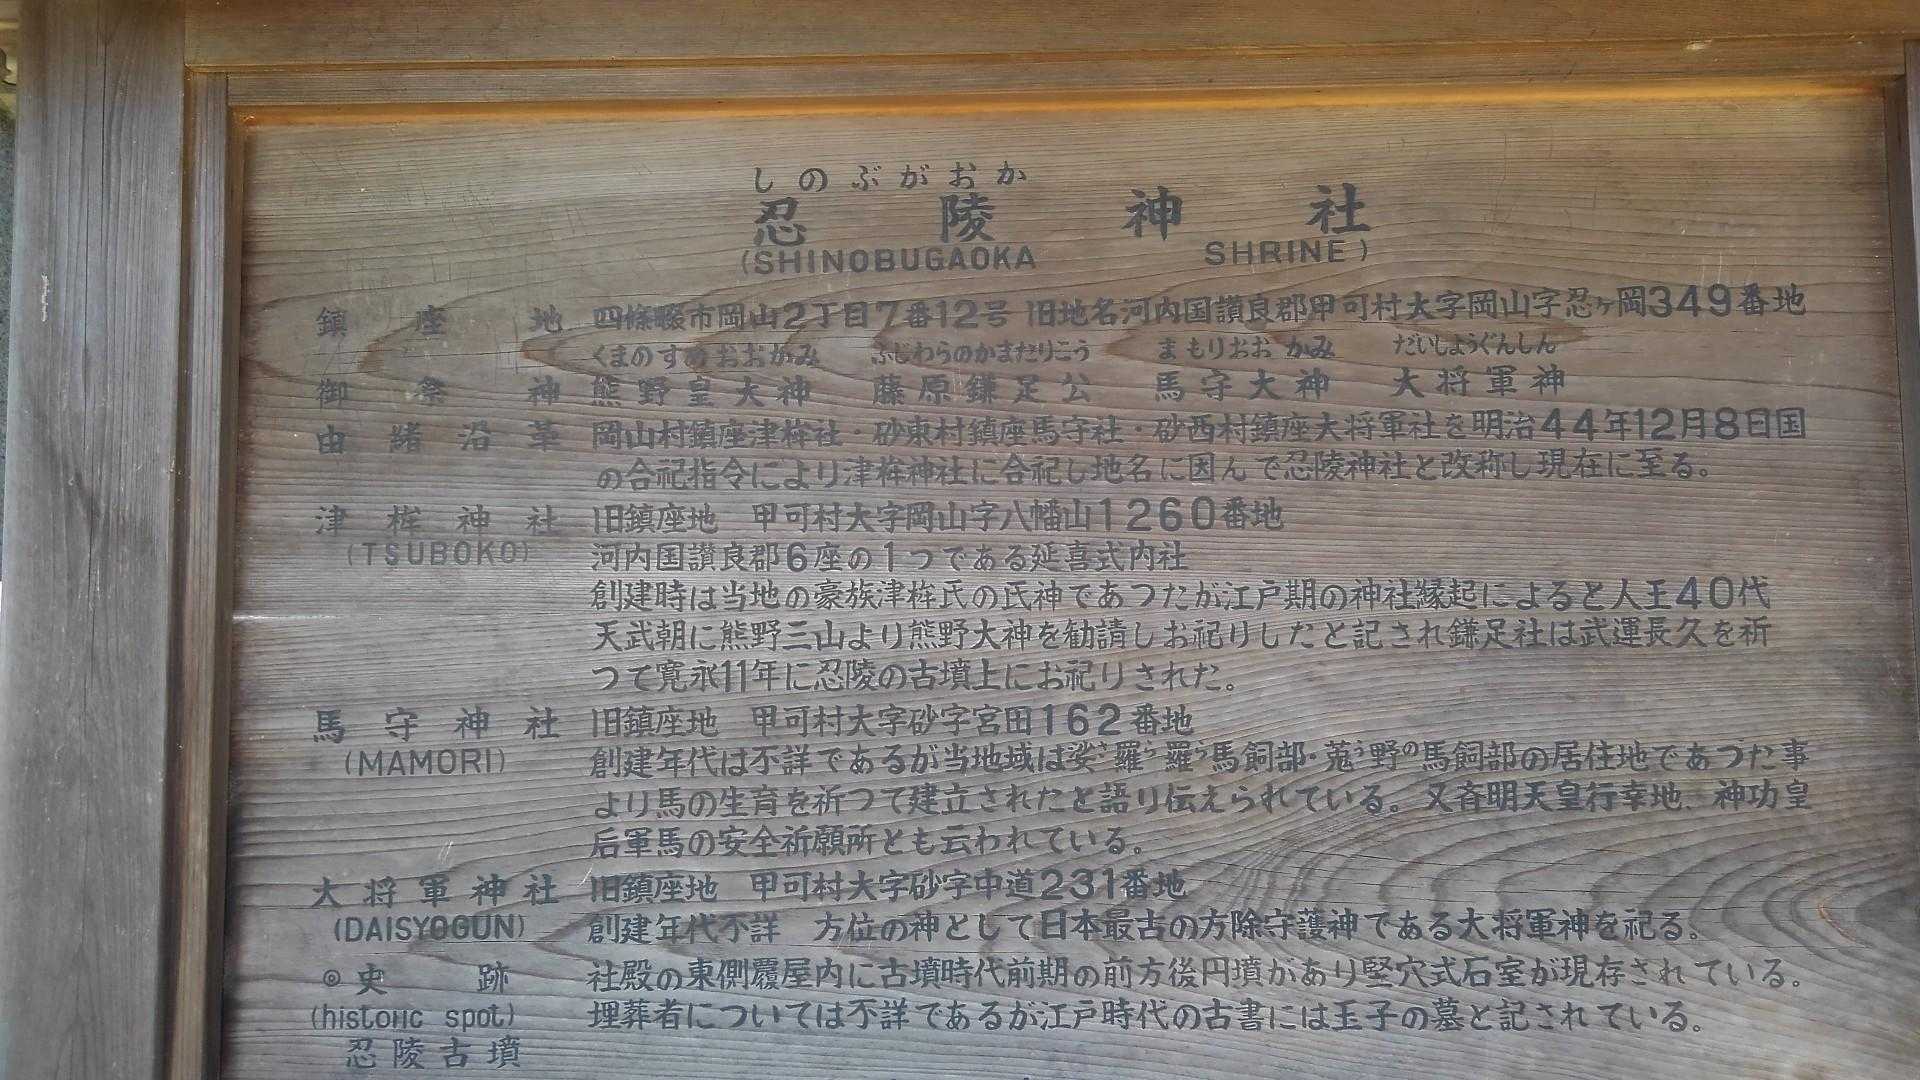 しのぶがおか
忍陵神社
(SHINOBUGAOKA SHRINE)
鎮座地 四條畷市岡山2丁目7番12号 旧地名河内国讃良郡甲可村大字岡山字忍ヶ岡349番地
くまのすめおおかみ ふじわらのかまたりこう まもりおおかみ だいしょうぐんしん
御祭神 熊野皇大神 藤原鎌足公 馬守大神 大将軍神
由緒沿革 岡山村鎮座津桙社・砂東村鎮座馬守社・砂西村鎮座大将軍社を明治44年12月8日国
の合祀指令により津桙神社に合祀し地名に因んで忍陵神社と改称し現在に至る。
津桙神社 旧鎮座地 甲可村大字岡山字八幡山1260番地
(TSUBOKO) 河内国讃良郡6座の1つである延喜式内社
創建時は当地の豪族津桙氏の氏神であつたが江戸期の神社縁起によると人王40代
天武朝に熊野三山より熊野大神を勧請しお祀りしたと記され鎌足社は武運長久を祈
つて寛永11年に忍陵の古墳上にお祀りされた。
馬守神社 旧鎮座地 甲可村大字砂字宮田162番地
(MAMORI) 創建年代は不詳であるが当地域は娑さ羅ら羅ら馬飼部・菟う野の馬飼部の居住地であつた事
より馬の生育を祈つて建立されたと語り伝えられている。又斉明天皇行幸地、神功皇
后軍馬の安全祈願所とも云われている。
大将軍神社 旧鎮座地 甲可村大字砂字中道231番地
(DAISYOGUN) 創建年代不詳 方位の神として日本最古の方除守護神である大将軍神を祀る。
◎史跡 社殿の東側覆屋内に古墳時代前期の前方後円墳があり竪穴式石室が現存されている。
(historic spot) 埋葬者については不詳であるが江戸時代の古書には王子の墓と記されている。
忍陵古墳